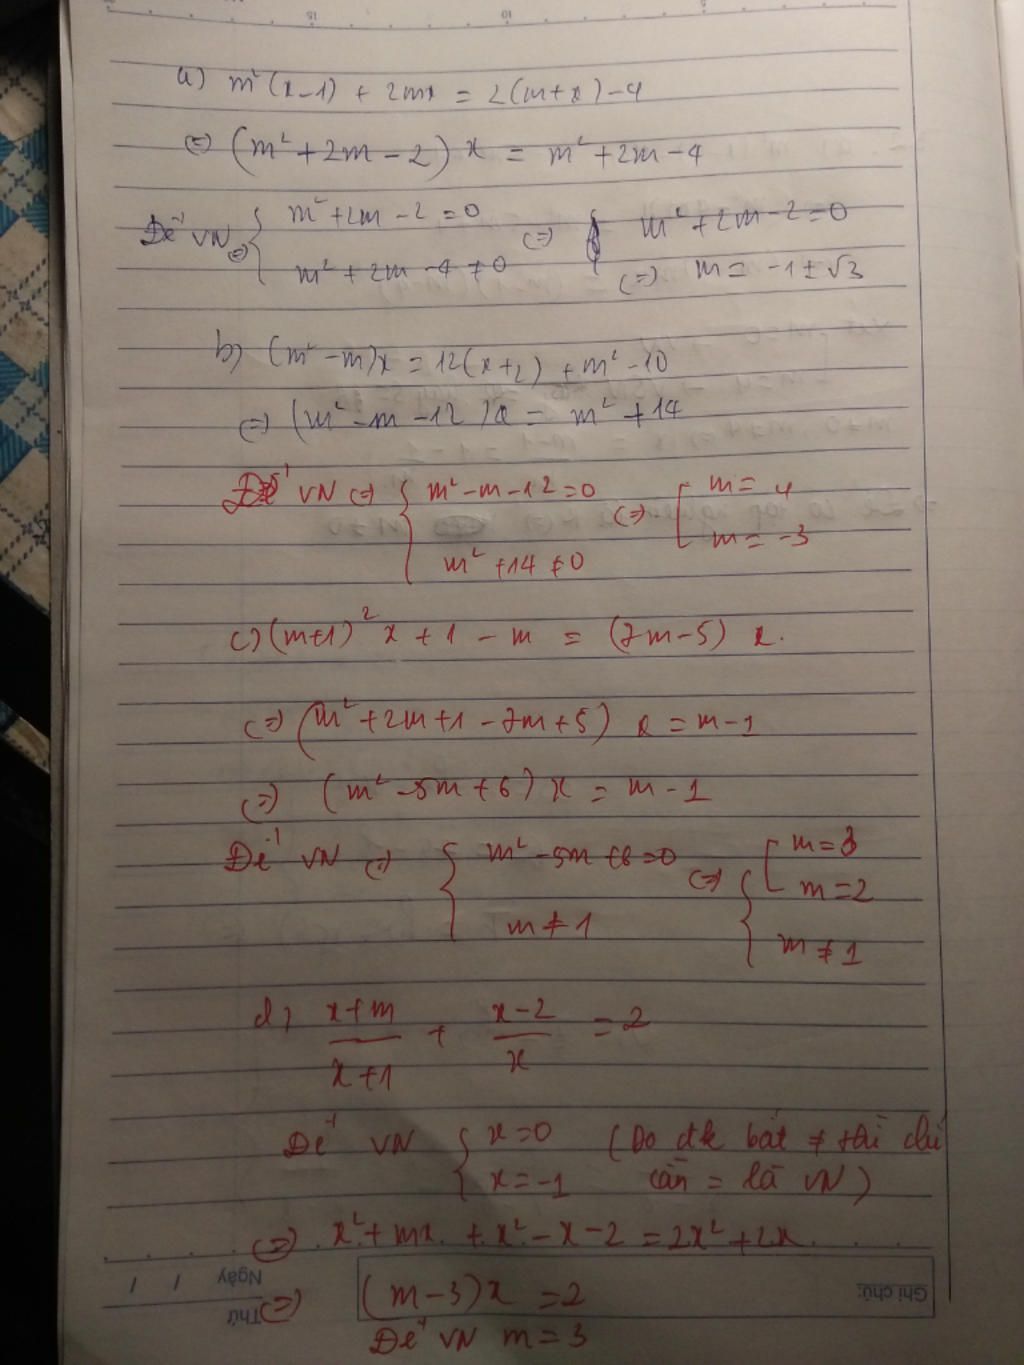 15 10 5
a) m²(x-1) + 2mx = 2(m+x) - 4
(=) (m² + 2m - 2) x = m² + 2m - 4
Để VN (=) { m² + 2m - 2 = 0 (=) { m² + 2m - 2 = 0
m² + 2m - 4 ≠ 0 (=) m = -1 ± √3
b) (m² - m)x = 12(x+2) + m² - 10
(=) (m² - m - 12)x = m² + 14
Để VN (=) { m² - m - 12 = 0 (=) [ m = 4
m² + 14 ≠ 0 m = -3
c) (m+1)² x + 1 - m = (7m-5) x.
(=) (m² + 2m + 1 - 7m + 5) x = m - 1
(=) (m² - 5m + 6) x = m - 1
Để VN (=) { m² - 5m + 6 = 0 (=) { [ m = 3
m = 2
m ≠ 1 m ≠ 1
d) \frac{x+m}{x+1} + \frac{x-2}{x} = 2
Để VN { x = 0 (Do đk bắt ≠ thì chỉ
x = -1 cần = là VN)
(=) x² + mx + x² - x - 2 = 2x² + 2x
(=) (m-3)x = 2
Để VN m = 3
Thứ
Ngày / /
Ghi chú: